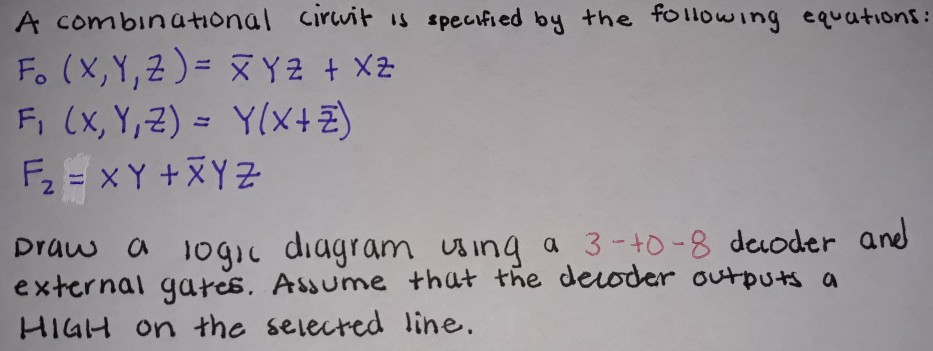 A combinational circuit is specified by the following equations:
F₀ (X,Y,Z) = X̅YZ + XZ
F₁ (X,Y,Z) = Y(X+Z̅)
F₂ = XY + X̅YZ
Draw a logic diagram using a 3-to-8 decoder and
external gates. Assume that the decoder outputs a
HIGH on the selected line.